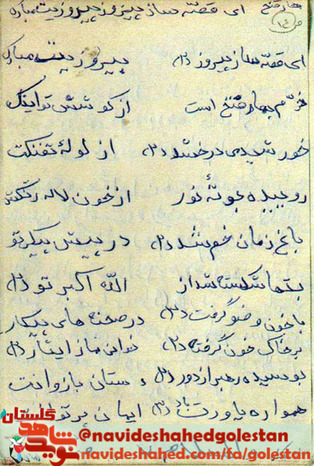 بهار فتح
۱۴
ای قصه ساز پیروز پیروزیت مبارک
ای قصه ساز پیروز (۲) پیروزیت مبارک
خرم بهار فتح است از کوشش توانیک
خورشیدی درخشد (۲) از لوله تفنگت
روییده بوته نور از خون لاله رنگت
باغ زمان خم شد (۲) در پیش پیکر تو
بتها شکسته شد از الله اکبر تو (۲)
با خون وضو گرفتی (۲) در صحنه های پیکار
بر خاک خون گرفته (۲) خواندی نماز ایثار (۲)
بوسیده رهبر از دور (۲) دستان بازوانت
همواره یاورت باد (۲) ایمان
گلستان
نوید شاهد
@navideshahedgolestan
navideshahed.com/fa/golestan